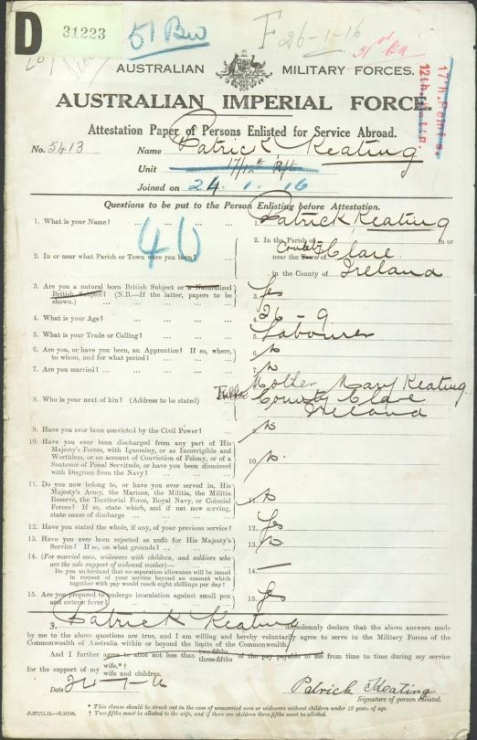 D 31223
51 Bn
F 26-1-16
51st Bn
17th Reinf.
12th Battn.
AUSTRALIAN MILITARY FORCES.
AUSTRALIAN IMPERIAL FORCE
Attestation Paper of Persons Enlisted for Service Abroad.
No. 5413 Name Patrick Keating
Unit 17/12th Rft
Joined on 24. 1. 16
Questions to be put to the Person Enlisting before Attestation.
1. What is your Name? 1. Patrick Keating
40
2. In or near what Parish or Town were you born? 2. In the Parish of in or
near the Town of County Clare
in the County of Ireland
3. Are you a natural born British Subject or a Naturalized
British Subject? (N.B.—If the latter, papers to be
shown.) 3. Yes
4. What is your Age? 4. 26 - 9
5. What is your Trade or Calling? 5. Labourer
6. Are you, or have you been, an Apprentice? If so, where,
to whom, and for what period? 6. No
7. Are you married? 7. No
8. Who is your next of kin? (Address to be stated) Mother Mary Keating
County Clare
Ireland
9. Have you ever been convicted by the Civil Power? 9. No
10. Have you ever been discharged from any part of His
Majesty's Forces, with Ignominy, or as Incorrigible and
Worthless, or on account of Conviction of Felony, or of a
Sentence of Penal Servitude, or have you been dismissed
with Disgrace from the Navy? 10. No.
11. Do you now belong to, or have you ever served in, His
Majesty's Army, the Marines, the Militia, the Militia
Reserve, the Territorial Force, Royal Navy, or Colonial
Forces? If so, state which, and if not now serving,
state cause of discharge 11. No
12. Have you stated the whole, if any, of your previous service? 12. Yes
13. Have you ever been rejected as unfit for His Majesty's
Service? If so, on what grounds? 13. No
14. (For married men, widowers with children, and soldiers who
are the sole support of widowed mother)—
Do you understand that no separation allowance will be issued
in respect of your service beyond an amount which
together with pay would reach eight shillings per day? 14. —
15. Are you prepared to undergo inoculation against small pox
and enteric fever? 15. Yes
3. Patrick Keating do solemnly declare that the above answers made
by me to the above questions are true, and I am willing and hereby voluntarily agree to serve in the Military Forces of the
Commonwealth of Australia within or beyond the limits of the Commonwealth.
And I further agree to allot not less than two-fifths three-fifths of the pay payable to me from time to time during my service
for the support of my wife.* † wife and children.
Date 24-1-16 Patrick Keating
Signature of person enlisted.
* This clause should be struck out in the case of unmarried men or widowers without children under 18 years of age.
† Two-fifths must be allotted to the wife, and if there are children three-fifths must be allotted.